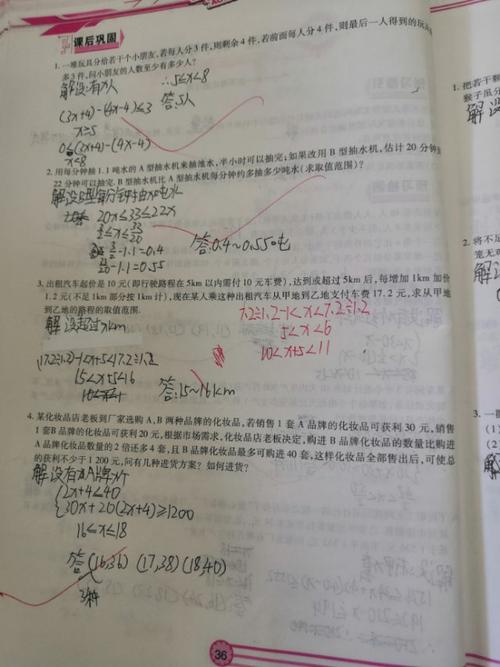 课后巩固
1. 一堆玩具分给若干个小朋友,若每人分3件,则剩余4件,若前面每人分4件,则最后一人得到的玩
多3件,问小朋友的人数至少有多少人?
解:设:有x人
∴5≤x<8
(3x+4)-(4x-4)≤3
答:5人
x≥5
0<(3x+4)-(4x-4)
x<8
2. 用每分钟抽1.1吨水的A型抽水机来抽池水,半小时可以抽完;如果改用B型抽水机,估计20分钟到
22分钟可以抽完. B型抽水机比A型抽水机每分钟约多抽多少吨水(求取值范围)?
解:设B型每分钟抽x吨水
20x≤33≤22x
3/2≤x≤33/20
3/2-1.1=0.4
33/20-1.1=0.55
答:0.4~0.55吨
3. 出租汽车起价是10元(即行驶路程在5km以内需付10元车费),达到或超过5km后,每增加1km加价
1.2元(不足1km部分按1km计),现在某人乘这种出租汽车从甲地到乙地支付车费17.2元,求从甲地
到乙地的路程的取值范围.
7.2÷1.2-1<x≤7.2÷1.2
解:设超过xkm
5<x≤6
10<x+5≤11
(17.2÷1.2)-1<x+5≤17.2÷1.2
15<x+5≤16
答:15~16km
4. 某化妆品店老板到厂家选购A,B两种品牌的化妆品,若销售1套A品牌的化妆品可获利30元,销售
1套B品牌的化妆品可获利20元,根据市场需求,化妆品店老板决定,购进B品牌化妆品的数量比购进
A品牌化妆品数量的2倍还多4套,且B品牌化妆品最多可购进40套,这样化妆品全部售出后,可使总
的获利不少于1200元,问有几种进货方案?如何进货?
解:设有x个A牌
2x+4≤40
30x+20(2x+4)≥1200
16≤x≤18
答:(16,36) (17,38) (18,40)
3种
36